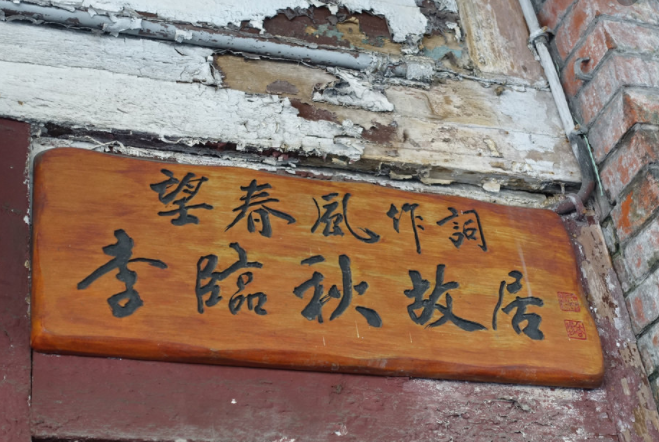 望春風作詞
李臨秋故居